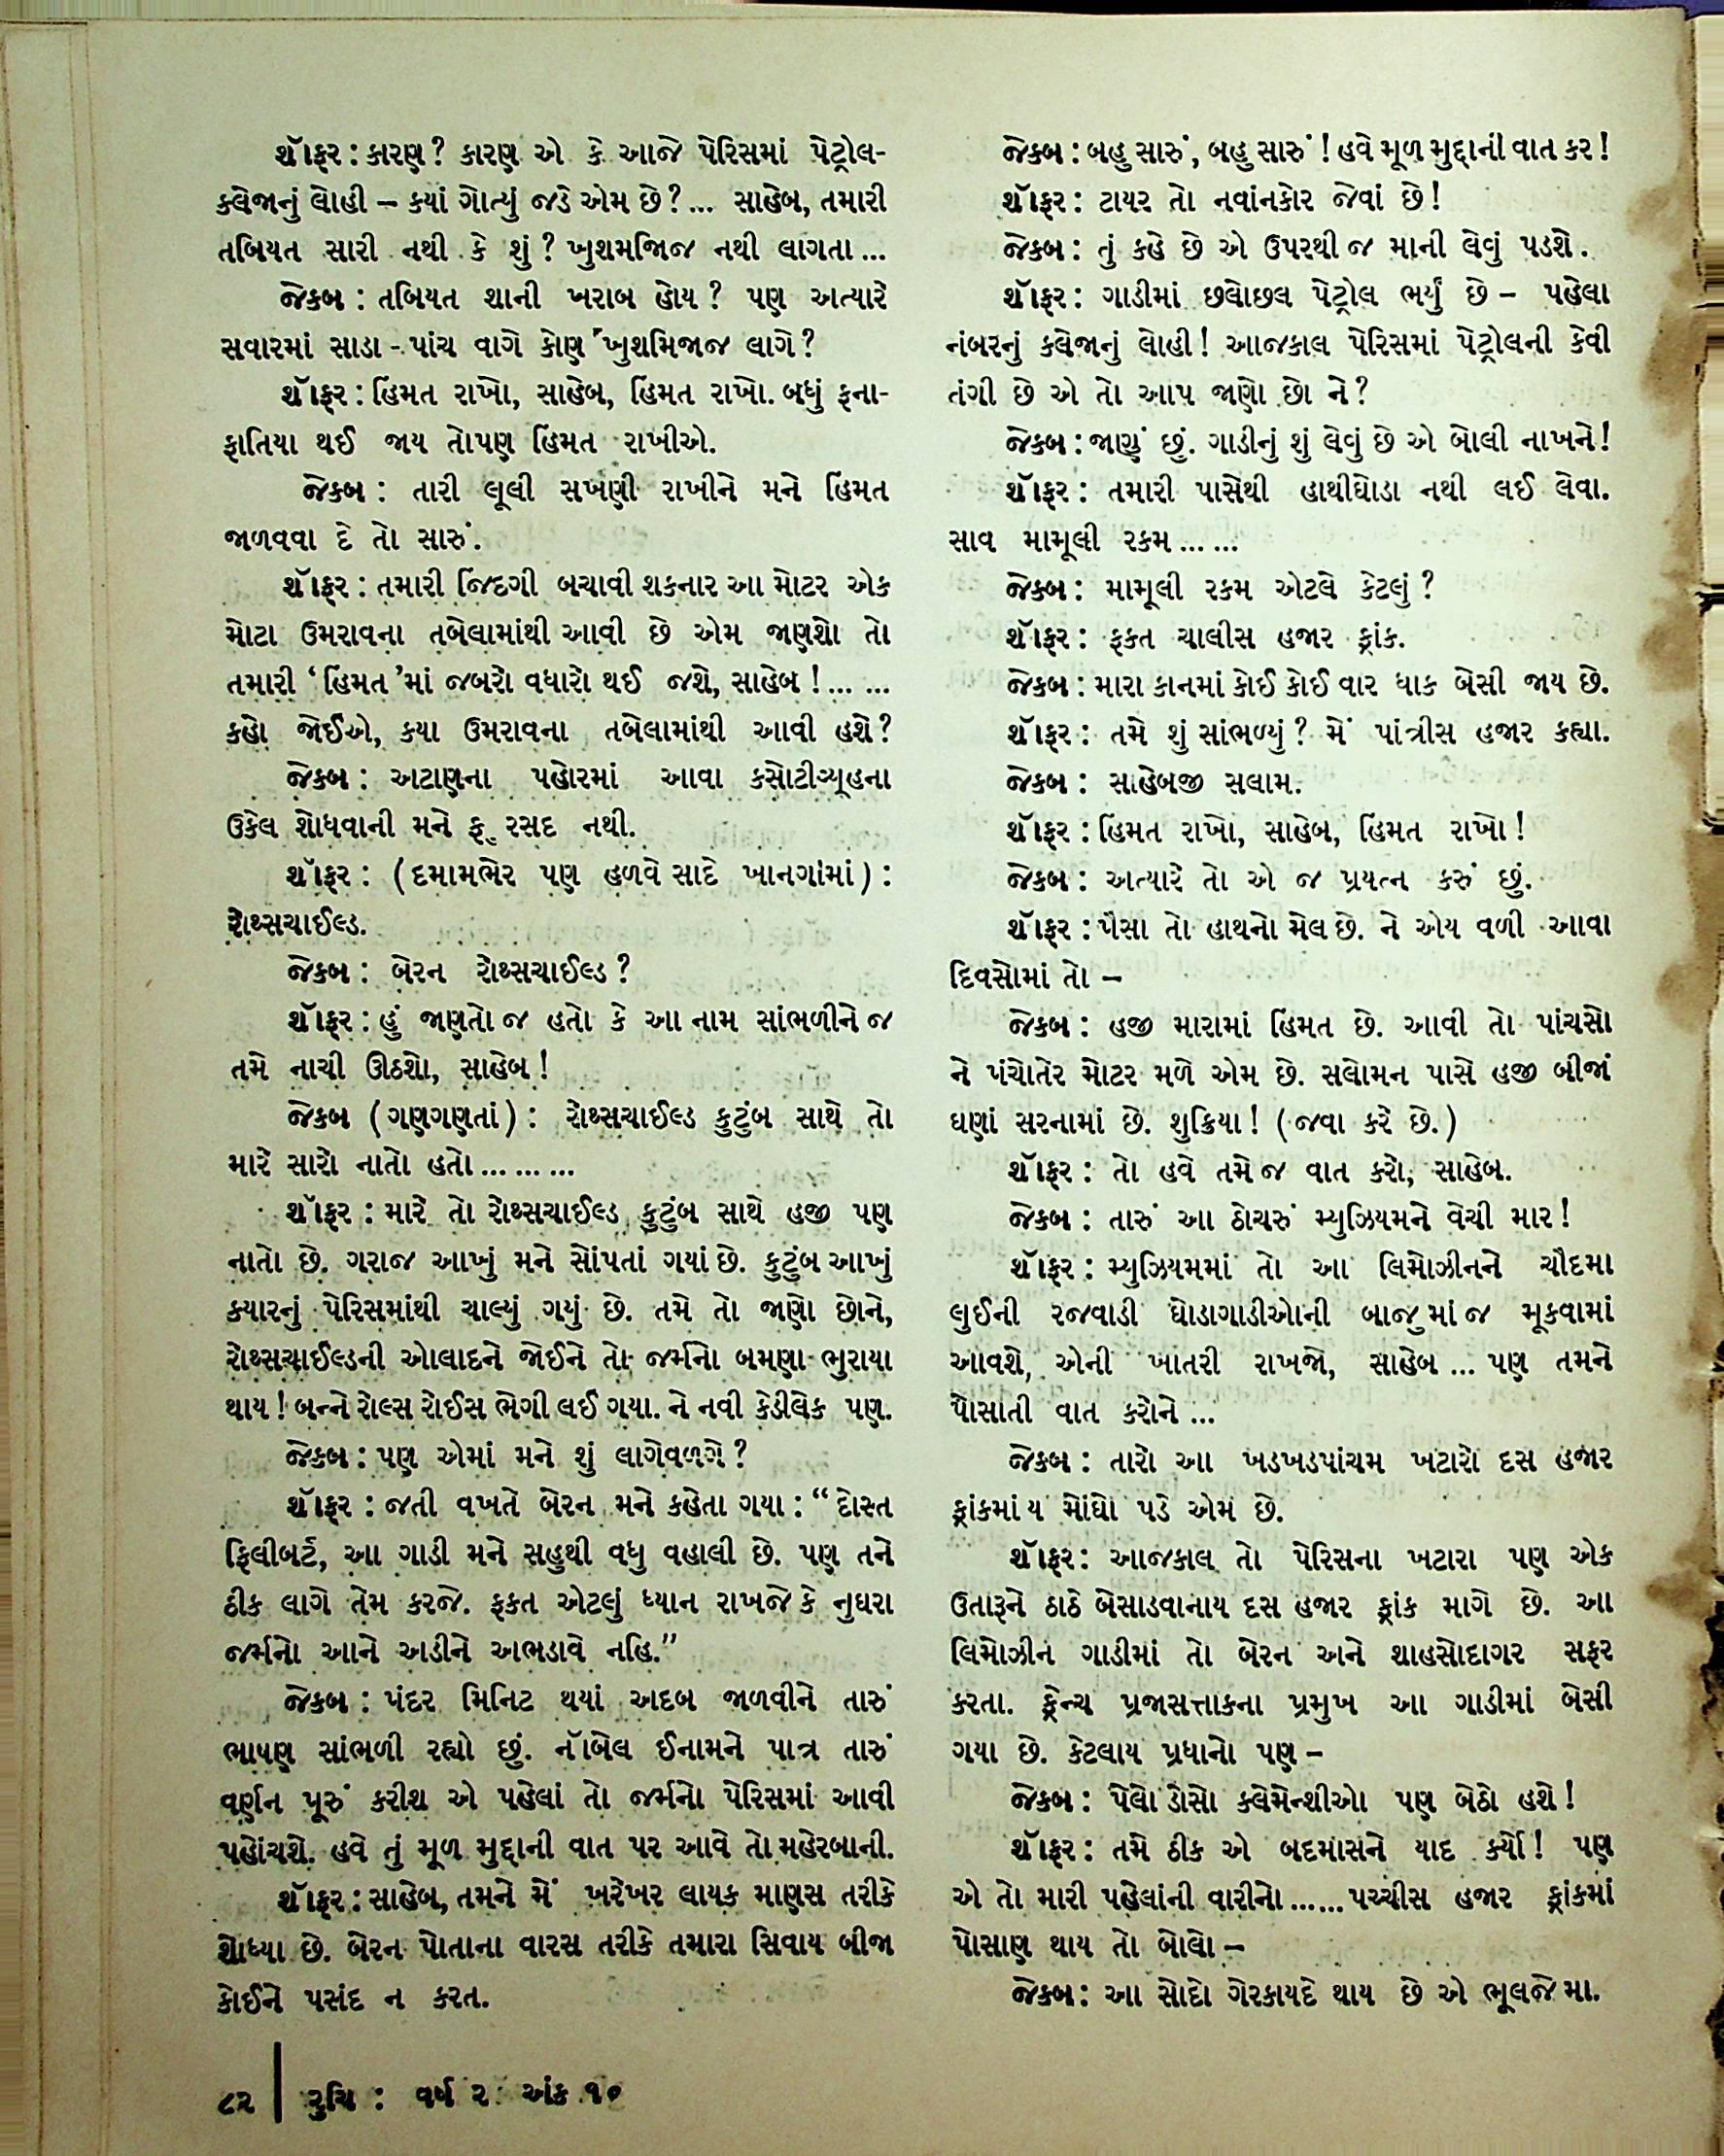 શૉફર : કારણ ? કારણ એ કે આજે પેરિસમાં પેટ્રોલ-
કલેજાનું લોહી – ક્યાં ગોત્યું જડે એમ છે ? ... સાહેબ, તમારી
તબિયત સારી નથી કે શું ? ખુશમજિજ નથી લાગતા ...
જેકબ : તબિયત શાની ખરાબ હોય ? પણ અત્યારે
સવારમાં સાડા - પાંચ વાગે કોણ ખુશમિજાજ લાગે ?
શૉફર : હિંમત રાખો, સાહેબ, હિંમત રાખો. બધું ફના-
ફાતિયા થઈ જાય તોપણ હિંમત રાખીએ.
જેકબ : તારી લૂલી સખણી રાખીને મને હિંમત
જાળવવા દે તો સારું.
શૉફર : તમારી જિંદગી બચાવી શકનાર આ મોટર એક
મોટા ઉમરાવના તબેલામાંથી આવી છે એમ જાણશો તો
તમારી ‘હિંમત’માં જબરો વધારો થઈ જશે, સાહેબ ! ... ...
કહો જોઈએ, કયા ઉમરાવના તબેલામાંથી આવી હશે ?
જેકબ : અટાણના પહોરમાં આવા કસોટીવ્યૂહના
ઉકેલ શોધવાની મને ફુરસદ નથી.
શૉફર : (દમામભેર પણ હળવે સાદે ખાનગામાં) :
રોથ્સચાઈલ્ડ.
જેકબ : બેરન રોથ્સચાઈલ્ડ ?
શૉફર : હું જાણતો જ હતો કે આ નામ સાંભળીને જ
તમે નાચી ઊઠશો, સાહેબ !
જેકબ (ગણગણતાં) : રોથ્સચાઈલ્ડ કુટુંબ સાથે તો
મારે સારો નાતો હતો ... ... ...
શૉફર : મારે તો રોથ્સચાઈલ્ડ કુટુંબ સાથે હજી પણ
નાતો છે. ગરાજ આખું મને સોંપતાં ગયાં છે. કુટુંબ આખું
ક્યારનું પેરિસમાંથી ચાલ્યું ગયું છે. તમે તો જાણો છોને,
રોથ્સચાઈલ્ડની ઓલાદને જોઈને તો જર્મનો બમણા ભુરાયા
થાય ! બન્ને રોલ્સ રોઈસ ભેગી લઈ ગયા. ને નવી કેડીલેક પણ.
જેકબ : પણ એમાં મને શું લાગેવળગે ?
શૉફર : જતી વખતે બેરન મને કહેતા ગયા : “દોસ્ત
ફિલીબર્ટ, આ ગાડી મને સહુથી વધુ વહાલી છે. પણ તને
ઠીક લાગે તેમ કરજે. ફકત એટલું ધ્યાન રાખજે કે નુઘરા
જર્મનો આને અડીને અભડાવે નહિ.”
જેકબ : પંદર મિનિટ થયાં અદબ જાળવીને તારું
ભાષણ સાંભળી રહ્યો છું. નૉબેલ ઈનામને પાત્ર તારું
વર્ણન પૂરું કરીશ એ પહેલાં તો જર્મનો પેરિસમાં આવી
પહોંચશે. હવે તું મૂળ મુદ્દાની વાત પર આવે તો મહેરબાની.
શૉફર : સાહેબ, તમને મેં ખરેખર લાયક માણસ તરીકે
શોધ્યા છે. બેરન પોતાના વારસ તરીકે તમારા સિવાય બીજા
કોઈને પસંદ ન કરત.
જેકબ : બહુ સારું, બહુ સારું ! હવે મૂળ મુદ્દાની વાત કર !
શૉફર : ટાયર તો નવાંનકોર જેવાં છે !
જેકબ : તું કહે છે એ ઉપરથી જ માની લેવું પડશે.
શૉફર : ગાડીમાં છલોછલ પેટ્રોલ ભર્યું છે – પહેલા
નંબરનું કલેજાનું લોહી ! આજકાલ પેરિસમાં પેટ્રોલની કેવી
તંગી છે એ તો આપ જાણો છો ને ?
જેકબ : જાણું છું. ગાડીનું શું લેવું છે એ બોલી નાખને !
શૉફર : તમારી પાસેથી હાથીઘોડા નથી લઈ લેવા.
સાવ મામૂલી રકમ ... ...
જેકબ : મામૂલી રકમ એટલે કેટલું ?
શૉફર : ફકત ચાલીસ હજાર ફ્રાંક.
જેકબ : મારા કાનમાં કોઈ કોઈ વાર ધાક બેસી જાય છે.
શૉફર : તમે શું સાંભળ્યું ? મેં પાંત્રીસ હજાર કહ્યા.
જેકબ : સાહેબજી સલામ.
શૉફર : હિંમત રાખો, સાહેબ, હિંમત રાખો !
જેકબ : અત્યારે તો એ જ પ્રયત્ન કરું છું.
શૉફર : પૈસા તો હાથનો મેલ છે. ને એય વળી આવા
દિવસોમાં તો –
જેકબ : હજી મારામાં હિંમત છે. આવી તો પાંચસો
ને પંચોતેર મોટર મળે એમ છે. સલોમન પાસે હજી બીજાં
ઘણાં સરનામાં છે. શુક્રિયા ! (જવા કરે છે.)
શૉફર : તો હવે તમે જ વાત કરો, સાહેબ.
જેકબ : તારું આ ઠોચરું મ્યુઝિયમને વેચી માર !
શૉફર : મ્યુઝિયમમાં તો આ લિમોઝીનને ચૌદમા
લુઈની રજવાડી ઘોડાગાડીઓની બાજુમાં જ મૂકવામાં
આવશે, એની ખાતરી રાખજો, સાહેબ ... પણ તમને
પોસાતી વાત કરોને ...
જેકબ : તારો આ ખડખડપાંચમ ખટારો દસ હજાર
ફ્રાંકમાંય મોંઘો પડે એમ છે.
શૉફર : આજકાલ તો પેરિસના ખટારા પણ એક
ઉતારૂને ઠાઠે બેસાડવાનાય દસ હજાર ફ્રાંક માગે છે. આ
લિમોઝીન ગાડીમાં તો બેરન અને શાહસોદાગર સફર
કરતા. ફ્રેન્ચ પ્રજાસત્તાકના પ્રમુખ આ ગાડીમાં બેસી
ગયા છે. કેટલાય પ્રધાનો પણ –
જેકબ : પેલો ડોસો કલેમેન્શીઓ પણ બેઠો હશે !
શૉફર : તમે ઠીક એ બદમાસને યાદ કર્યો ! પણ
એ તો મારી પહેલાંની વારીનો ...... પચ્ચીસ હજાર ફ્રાંકમાં
પોસાણ થાય તો બોલો –
જેકબ : આ સોદો ગેરકાયદે થાય છે એ ભૂલજે મા.
૮૨ | રુચિ : વર્ષ ૨ અંક ૧૦